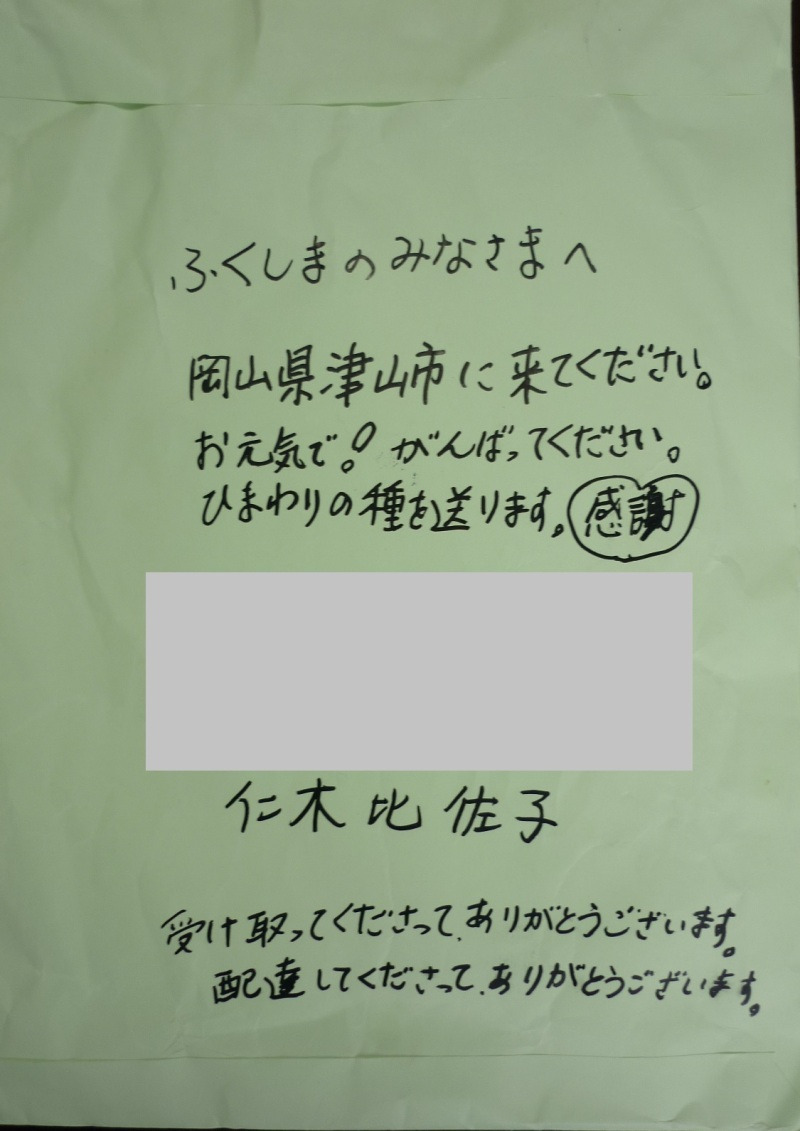 ふくしまのみなさまへ
岡山県津山市に来てください。
お元気で。0 がんばってください。
ひまわりの種を送ります。感謝
仁木比佐子
受け取ってくださって、ありがとうございます。
配達してくださって、ありがとうございます。